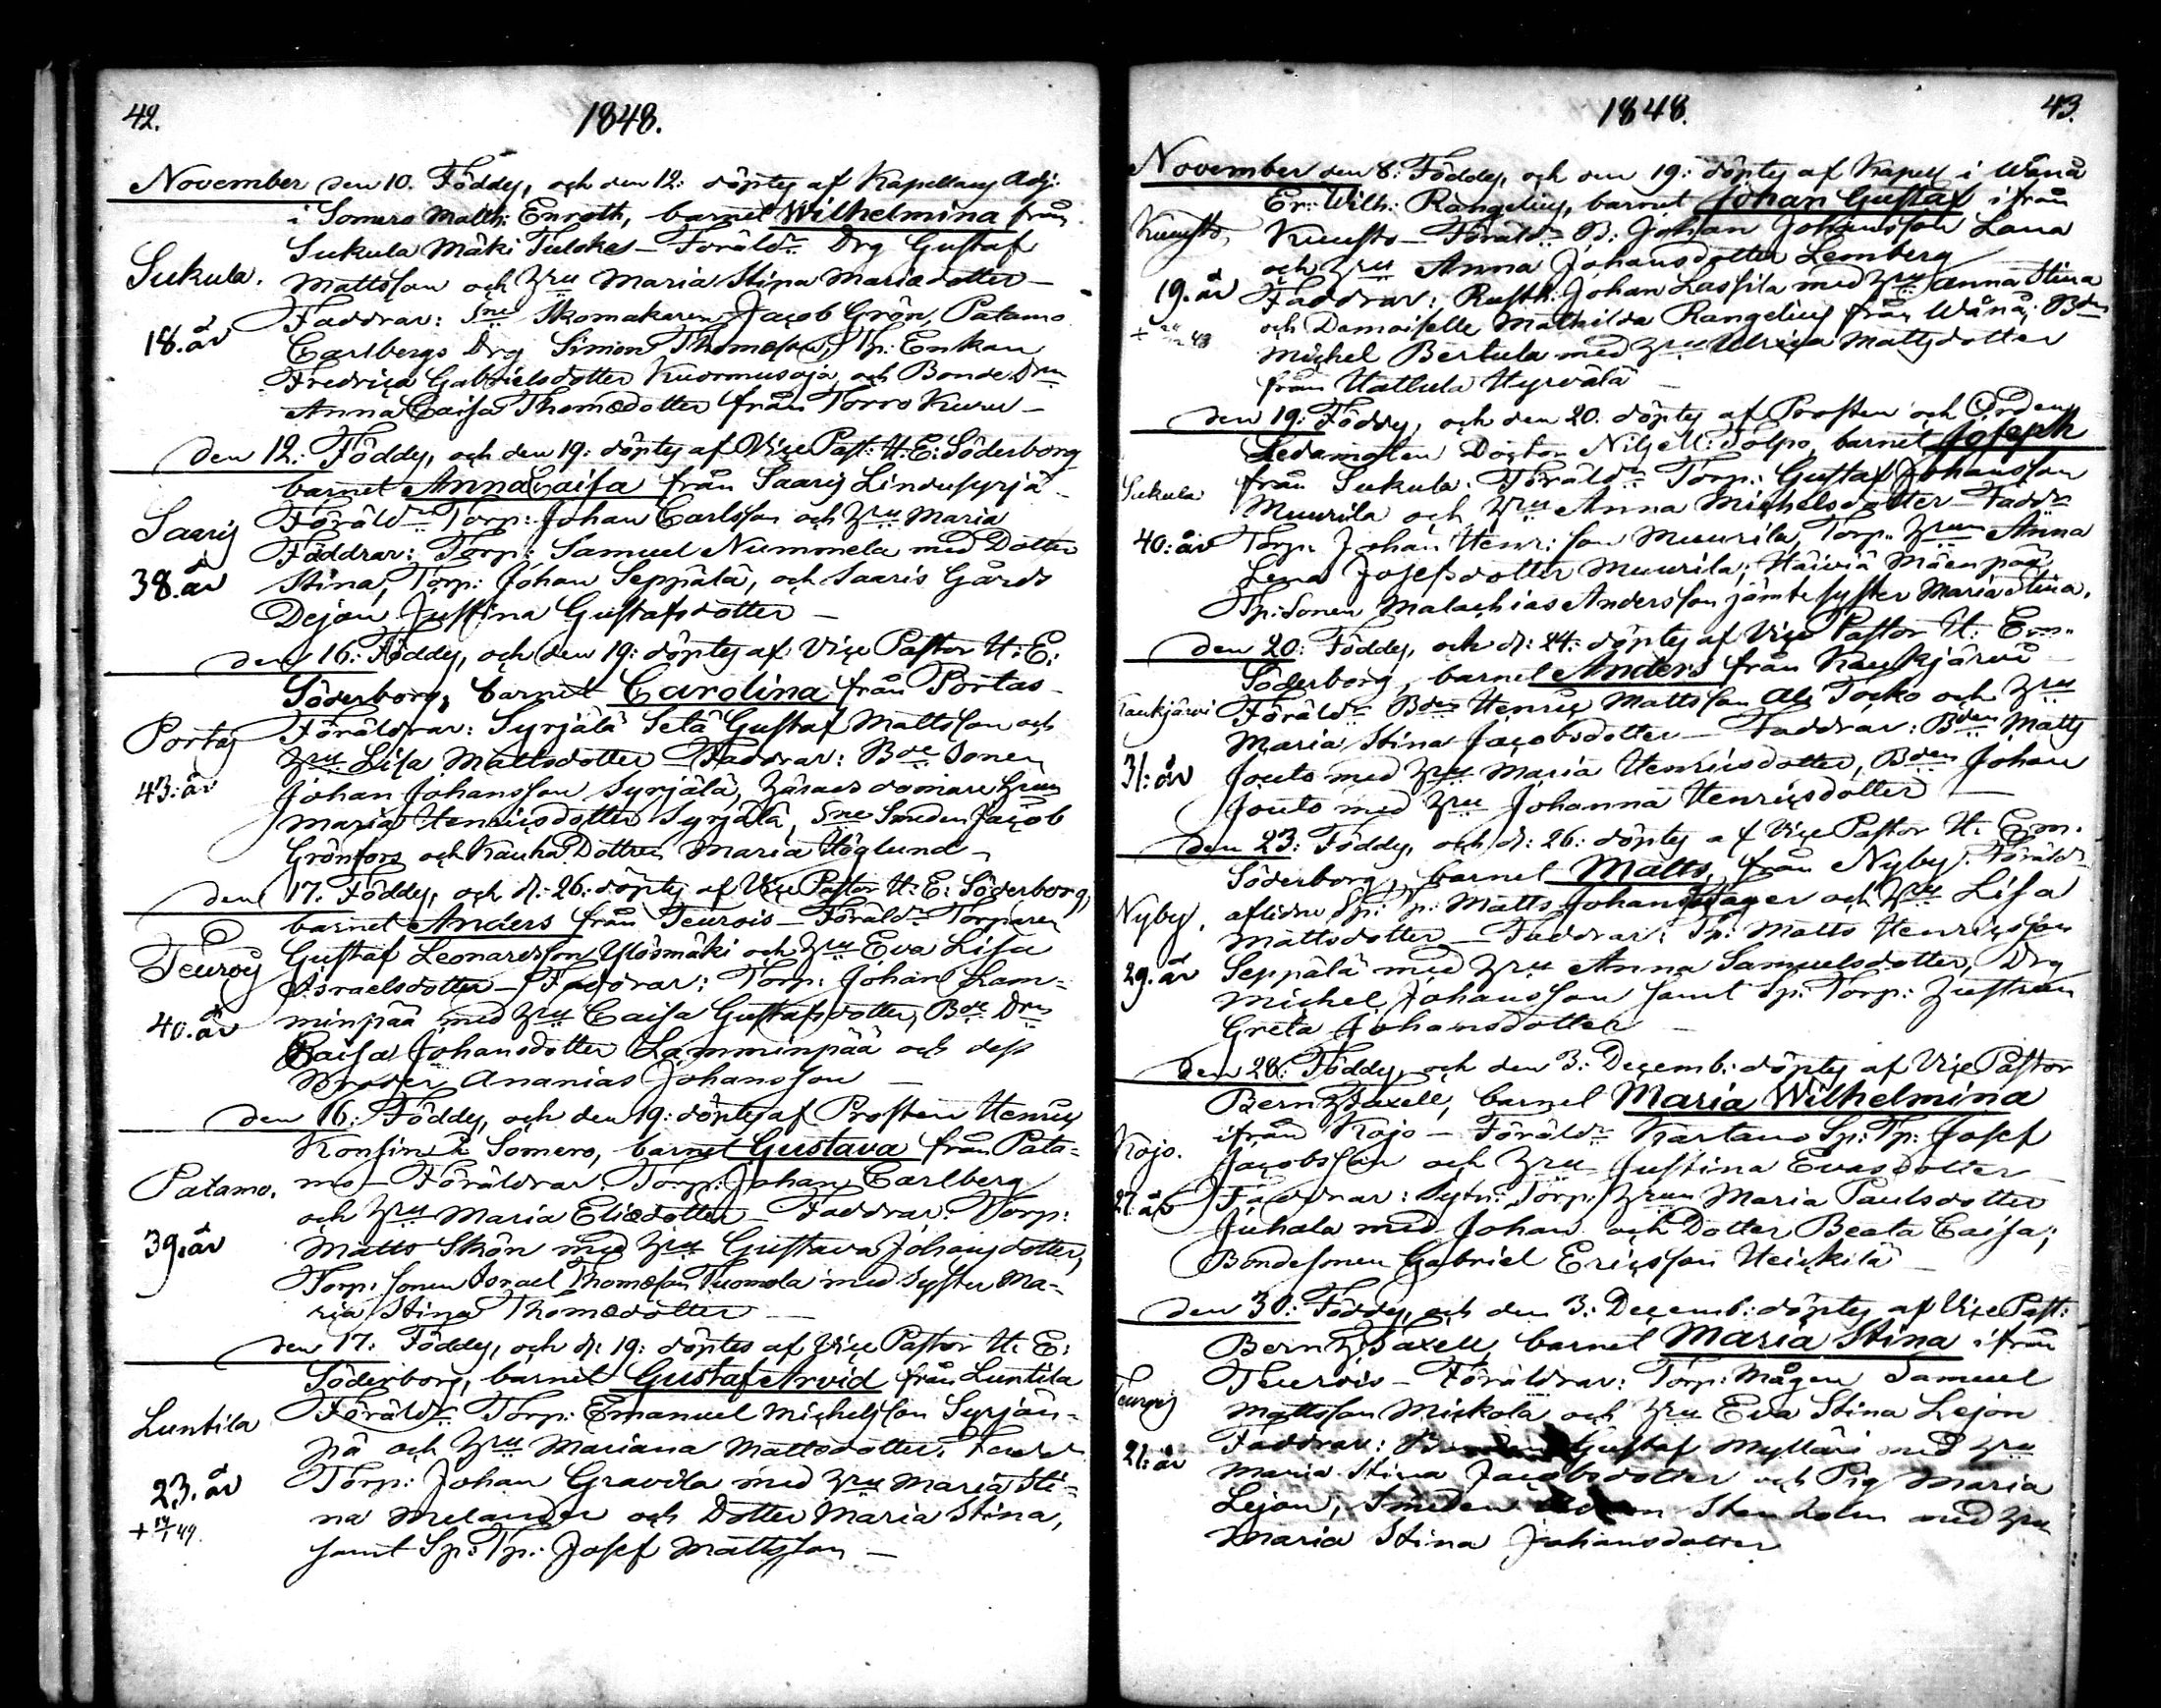 42.
1848.
November den 10. Föddes, och den 12: döptes af Kapellans Adj:
i Somero Matth: Enroth, barnet Wilhelmina från
Sukula Mäki Tulokas – Föräldr Drg Gustaf
Sukula.
Mattsson och Hru Maria Stina Mariædotter –
Faddrar: Sne Skomakaren Jacob Grön, Patamo
18. år
Carlbergs Drg Simon Thomæson, Tp: Enkan
Fredrica Gabrielsdotter Kuormusoja, och Bonde Drn
Anna Caisa Thomædotter från Torro Kuru –
den 12: Föddes, och den 19: döptes af Vice Past: H: E: Söderborg
barnet Anna Caisa från Saaris Lindusyrjä –
Saaris
Föräldrar Torp: Johan Carlsson och Hru Maria
Faddrar: Torp: Samuel Nummela med Dotter
38. år
Stina, Torp: Johan Seppälä, och Saaris Gårds
Dejan Justina Gustafsdotter –
den 16: Föddes, och den 19: döptes af Vice Pastor H: E:
Söderborg, barnet Carolina från Portas –
Portas
Föräldrar: Syrjälä Setä Gustaf Mattsson och
Hru Lisa Mattsdotter – Faddrar: Bde Sonen
43: år
Johan Johansson Syrjälä, Häradsdomare Hrun
Maria Henricsdotter Syrjälä, Sne Smeden Jacob
Grönfors och Kauha Dottren Maria Höglund –
den 17. Föddes, och d: 26. döptes af Vice Pastor H: E: Söderborg,
barnet Anders från Teurois – Föräldr Torparen
Teurois
Gustaf Leonardsson Ylösmäki och Hru Eva Lisa
Israelsdotter – Faddrar: Torp: Johan Lam=
40. år
minpää med Hru Caisa Gustafsdotter, Bde Drn
Caisa Johansdotter Lamminpää och dess
Broder Ananias Johansson –
den 16: Föddes, och den 19: döptes af Prosten Henric
Konsin i Somero, barnet Gustava från Pata=
Patamo.
mo – Föräldrar Torp: Johan Carlberg
och Hru Maria Eliædotter – Faddrar: Torp:
39. år
Matts Skön med Hru Gustava Johansdotter,
Torp: sonen Israel Thomæson Tuomola med Syster Ma=
ria Stina Thomædotter –
den 17: Föddes, och d: 19: döptes af Vice Pastor H: E:
Söderborg, barnet Gustaf Arvid från Luntila
Luntila
Föräldr Torp: Emanuel Michelsson Syrjän=
pä och Hru Mariana Mattsdotter. Faddr
23. år
Torp: Johan Gravila med Hru Maria Sti=
+ 14/1 49.
na Melander och Dotter Maria Stina,
samt Sp: Tp: Josef Mattsson –
1848.
43.
November den 8: Föddes, och den 19: döptes af Kapell i Wånå
Er: Wilh: Rangelius, barnet Johan Gustaf ifrån
Kuusto,
Kuusto – Föräldr B: Johan Johansson Lana
och Hru Anna Johansdotter Lemberg
19. år
Faddrar: Rusth: Johan Lassila med Hru Anna Stina
och Demoiselle Mathilda Rangelius från Wånå; Bdn
Michel Bertula med Hru Ulrica Mattsdotter
från Hattula Hyrvälä –
den 19: Föddes, och den 20. döptes af Prosten och Ordens
Ledamoten Doctor Nils Tolpo, barnet Joseph
Sukula
från Sukula. Föräldr Torp: Gustaf Johansson
Muurila och Hru Anna Michelsdotter – Faddr
40: år
Torp. Johan Henr: son Muurila, Torp. Hrun Anna
Lena Josefsdotter Muurila; Häiviä Mäenpää
Tp: Sonen Malachias Andersson jämte syster Maria Stina.
den 20: Föddes, och d: 24: döptes af Vice Pastor H: Em:
Söderborg, barnet Anders från Kaukjärvi –
Kaukjärvi
Föräldr Bden Henric Mattsson Ali Tocko och Hru
Maria Stina Jacobsdotter – Faddrar: Bden Matts
31: år
Jouto med Hru Maria Henricsdotter, Bden Johan
Jouto med Hru Johanna Henricsdotter –
den 23: Föddes, och d: 26: döptes af Vice Pastor H: Em.
Söderborg, barnet Matts, från Nyby. Föräldr
Nyby.
aflidne Sp: Tp: Matts Johansson och Hru Lisa
Mattsdotter – Faddrar: Tp: Matts Henricsson
29. år
Seppälä med Hru Anna Samuelsdotter, Drg
Michel Johansson samt Sp: Torp: Hustrun
Greta Johansdotter –
den 28: Föddes, och den 3: Decemb: döptes af Vice Pastor
Bern: Taxell, barnet Maria Wilhelmina
Kojo.
ifrån Kojo – Föräldr Kartano Sp: Tp: Josef
Jacobsson och Hru Justina Evasdotter
27. år
Faddrar: Sytn: Torp: Hrun Maria Paulsdotter
Juhala med Johan och Dotter Beata Caisa;
Bondesonen Gabriel Ericsson Heickilä –
den 30: Föddes, och den 3: Decemb: döptes af Vice Past:
Bern: Taxell, barnet Maria Stina ifrån
Teurois
Teurois – Föräldrar: Torp: Mågen Samuel
Mattsson Mickola och Hru Eva Stina Lejon
21: år
Faddrar: Gustaf Mylläri med Hru
Maria Stina Jacobsdotter och Pig Maria
Lejon; Smeden Stenholm med Hru
Maria Stina Johansdotter